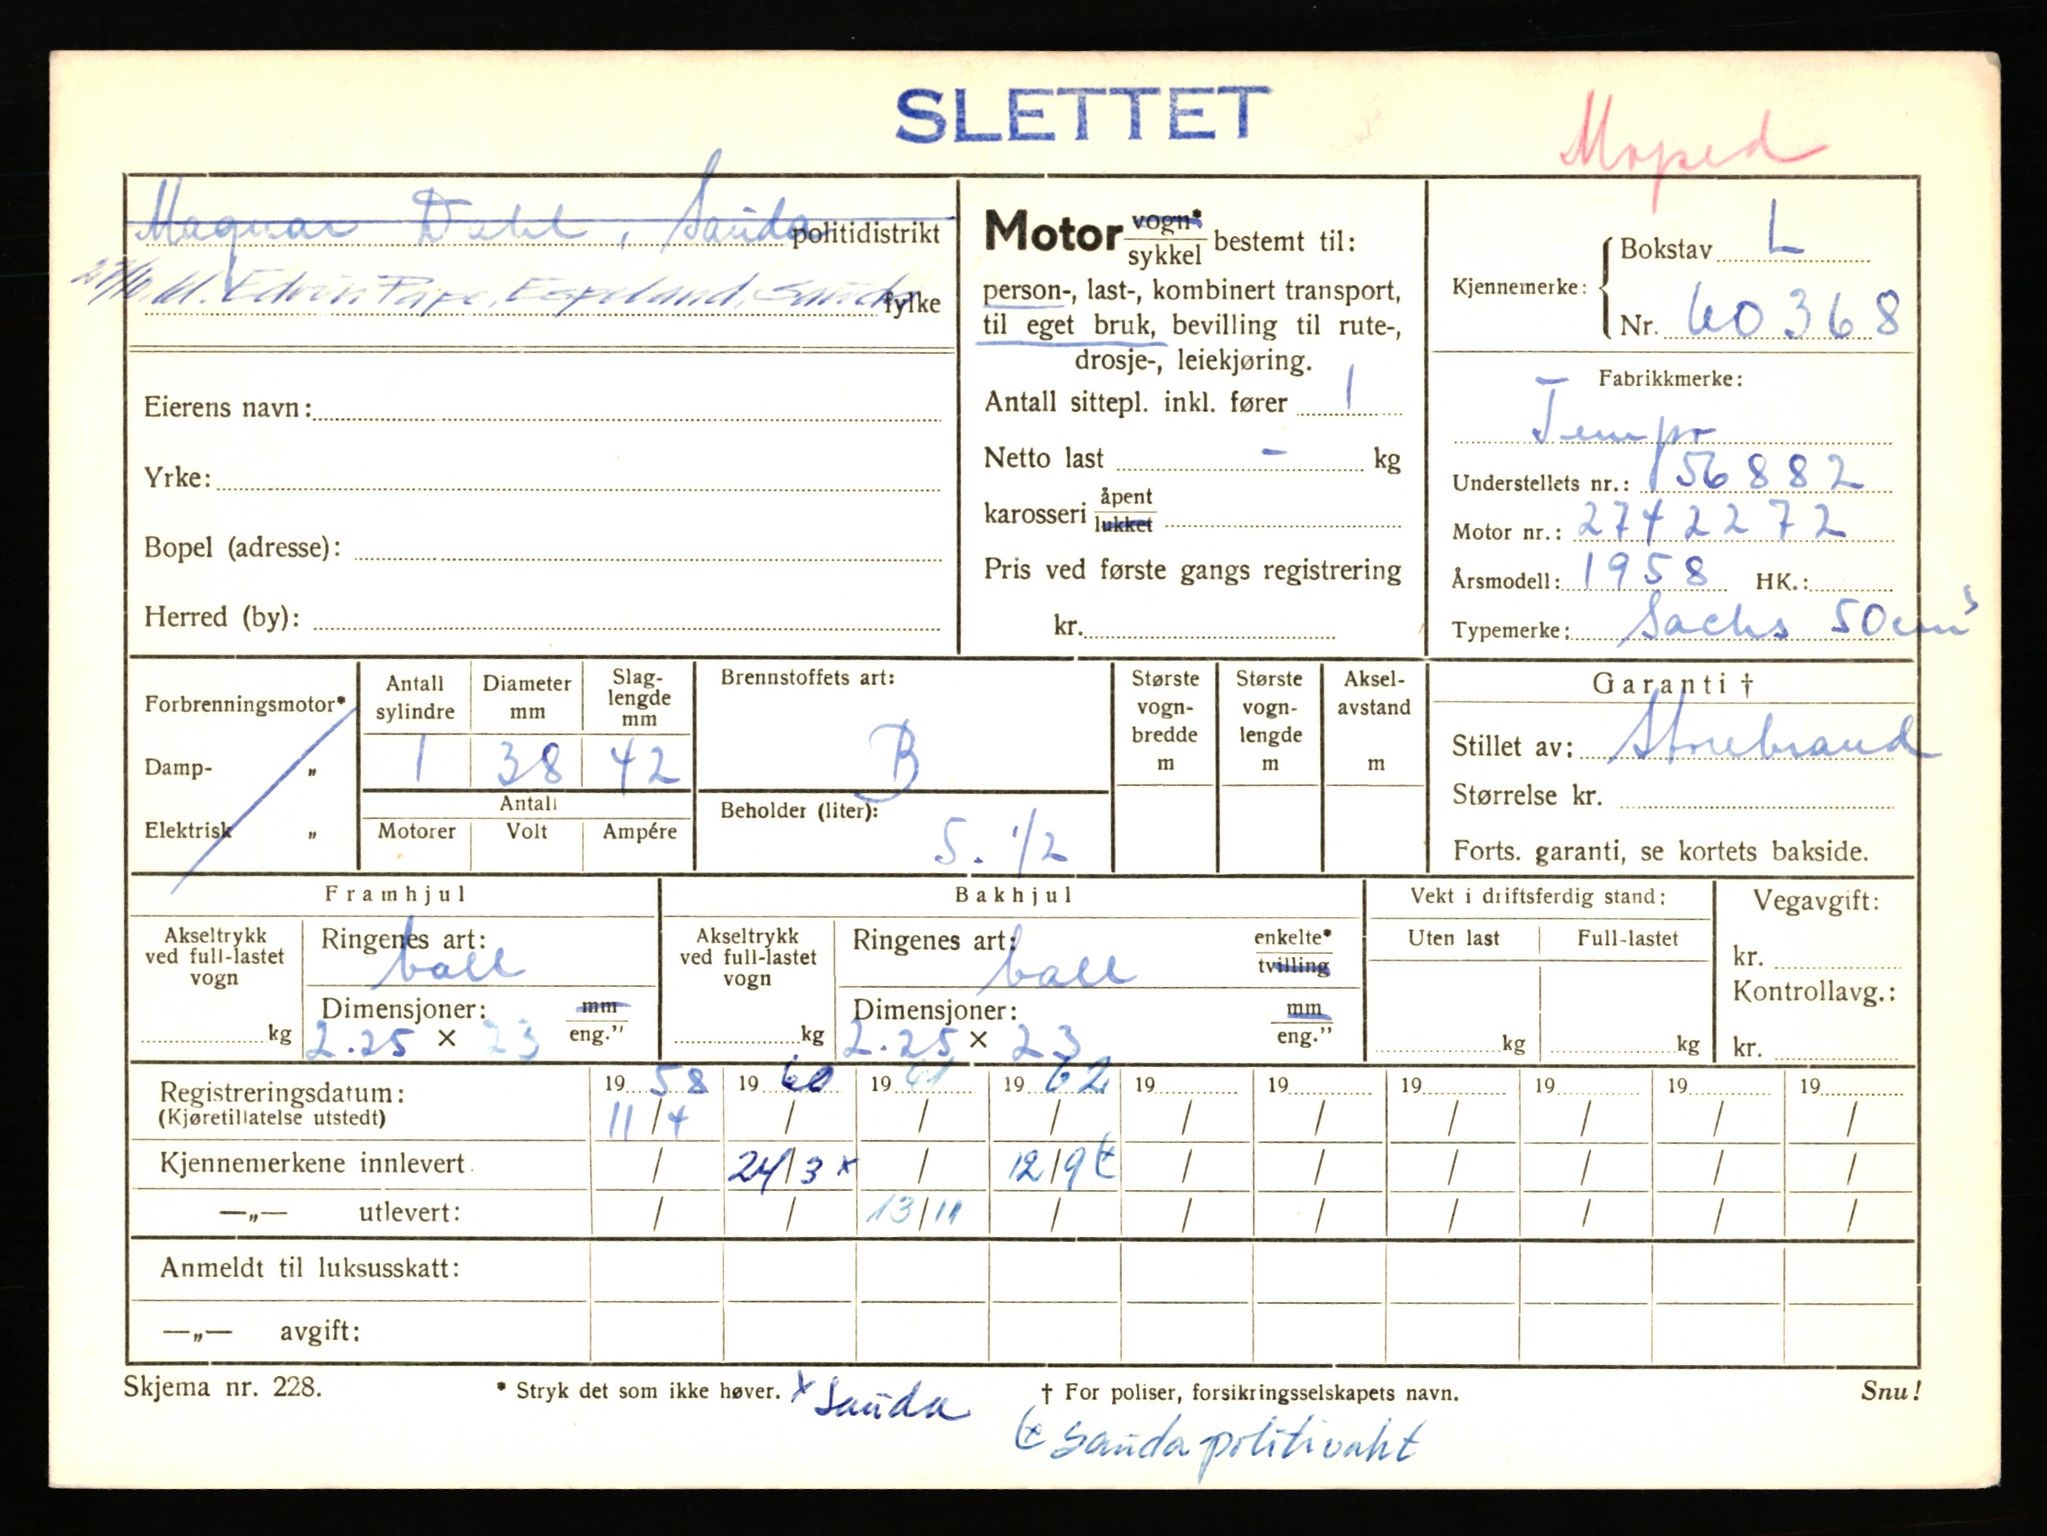 SLETTET
Moped
Magnar Dahl, Sauda politidistrikt
Edvin Pape, Espeland, Sauda fylke
Eierens navn:
Yrke:
Bopel (adresse):
Herred (by):
Motor vogn*/sykkel bestemt til:
person-, last-, kombinert transport,
til eget bruk, bevilling til rute-,
drosje-, leiekjøring.
Antall sittepl. inkl. fører 1
Netto last - kg
karosseri åpent/lukket
Pris ved første gangs registrering
kr.
Kjennemerke: Bokstav L
Nr. 60368
Fabrikkmerke:
Tempo
Understellets nr.: 156882
Motor nr.: 2742272
Årsmodell: 1958 HK.:
Typemerke: Sachs 50cm³
Forbrenningsmotor*
Damp- „
Elektrisk „
Antall sylindre 1
Diameter mm 38
Slag-lengde mm 42
Antall
Motorer Volt Ampére
Brennstoffets art:
B
Beholder (liter):
5. 1/2
Største vogn-bredde m
Største vogn-lengde m
Aksel-avstand m
Garanti †
Stillet av: Storebrand
Størrelse kr.
Forts. garanti, se kortets bakside.
Framhjul
Akseltrykk ved full-lastet vogn
kg
Ringenes art:
ball
Dimensjoner: mm/eng."
2.25 × 23
Bakhjul
Akseltrykk ved full-lastet vogn
kg
Ringenes art: enkelte*/tvilling
ball
Dimensjoner: mm/eng."
2.25 × 23
Vekt i driftsferdig stand:
Uten last Full-lastet
kg kg
Vegavgift:
kr.
Kontrollavg.:
kr.
Registreringsdatum: 19 58 19 60 19 61 19 62 19 19 19 19 19 19
(Kjøretillatelse utstedt) 11/4 / / / / / / / / /
Kjennemerkene innlevert / 24/3 x / 12/9 (x / / / / / /
—„— utlevert: / / 13/11 / / / / / / /
Anmeldt til luksusskatt:
—„— avgift:
Skjema nr. 228. * Stryk det som ikke høver. x Sauda † For poliser, forsikringsselskapets navn. Snu!
(x Sauda politivakt